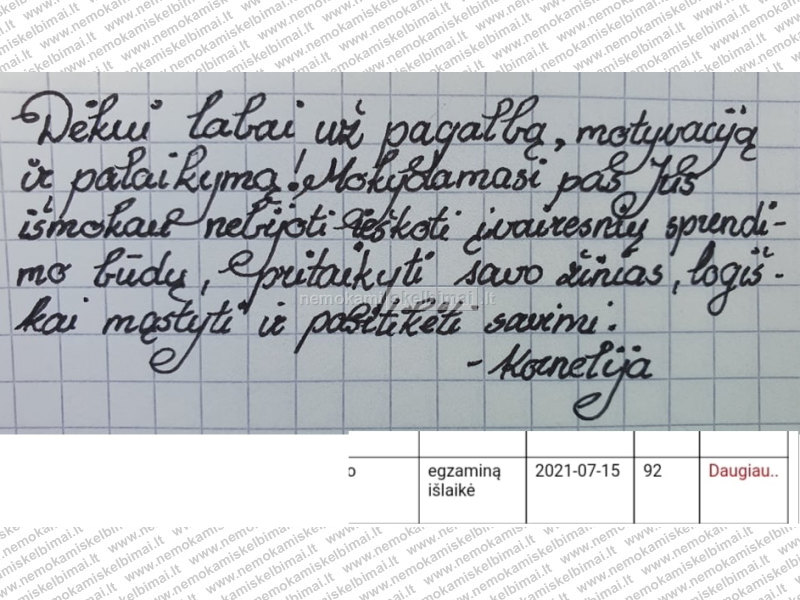 Dėkui labai už pagalbą, motyvaciją
ir palaikymą! Mokydamasi pas Jus
išmokau nebijoti ieškoti įvairesnių sprendi-
mo būdų, pritaikyti savo žinias, logiš-
kai mąstyti ir pasitikėti savimi.
- Kornelija
nemokamiskelbimai.lt
o egzaminą 2021-07-15 92 Daugiau..
išlaikė
www.nemokamiskelbimai.lt